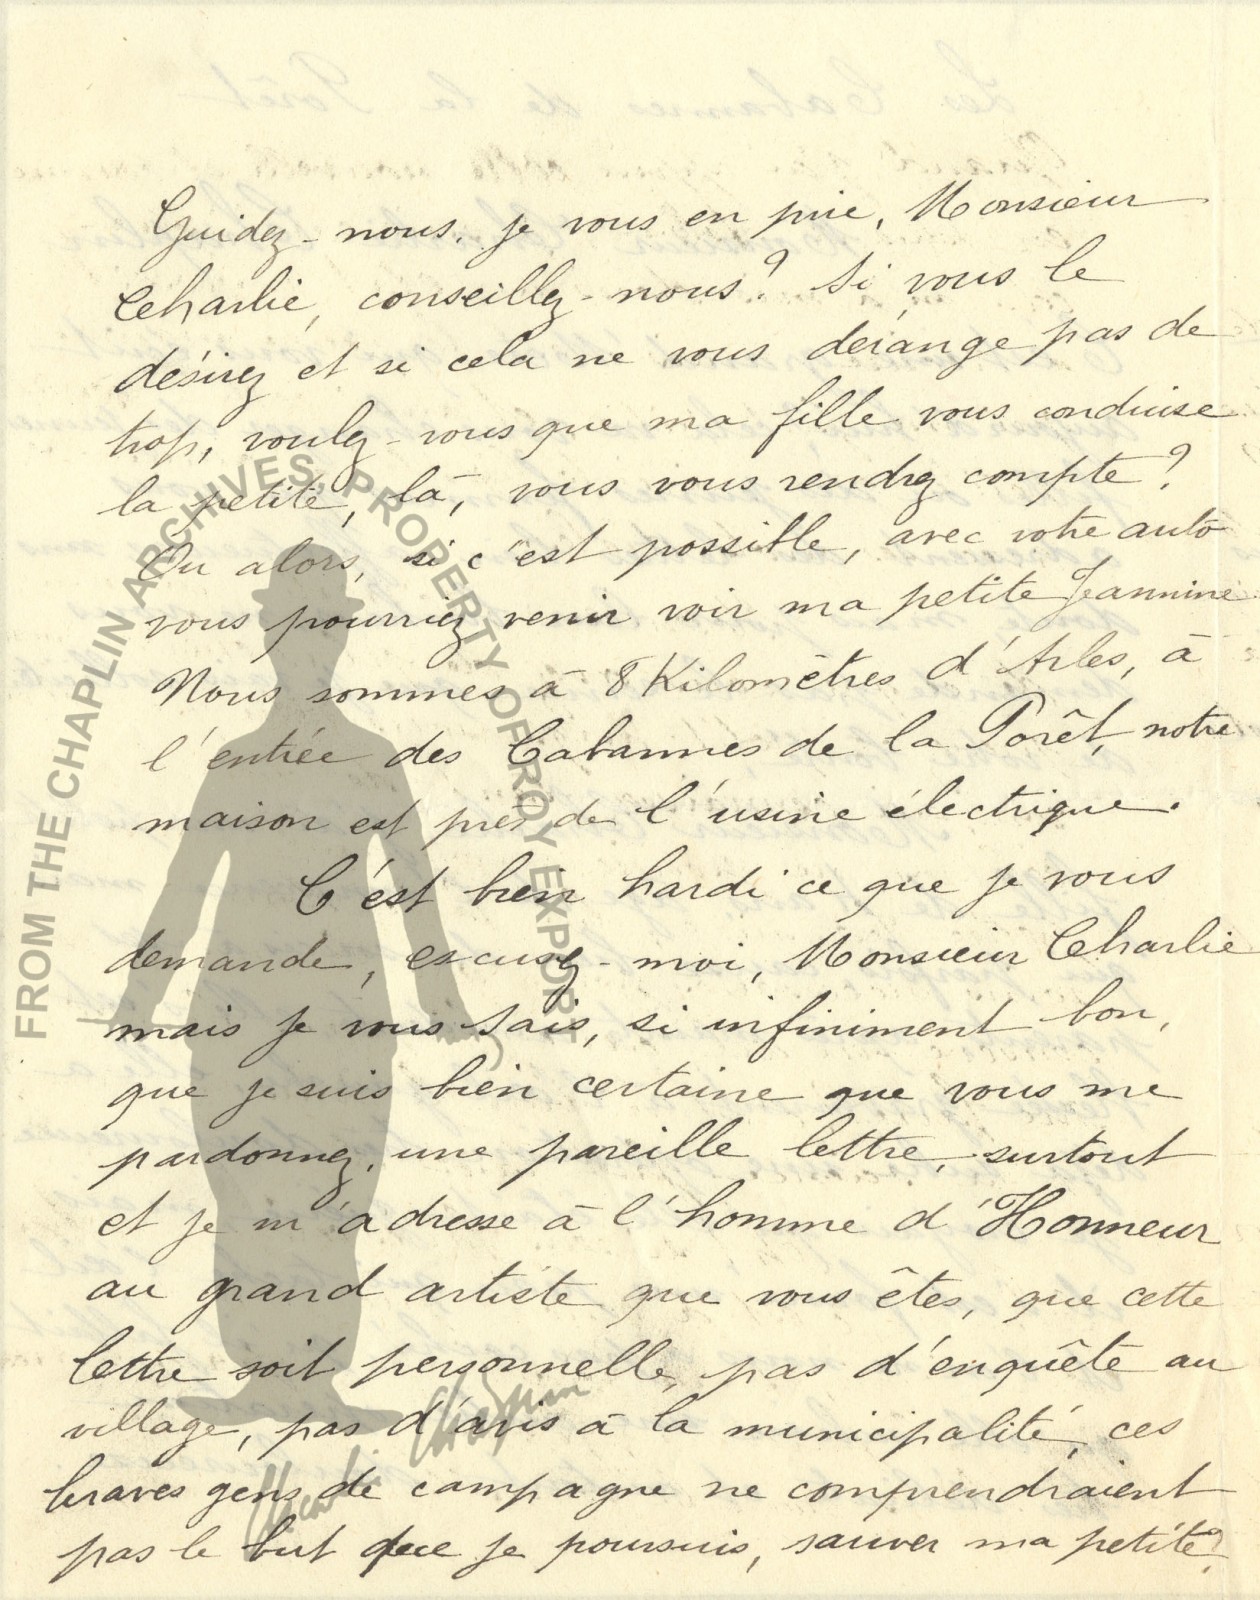 Guidez-nous, je vous en prie, Monsieur
Charlie, conseillez-nous? Si vous le
désirez et si cela ne vous dérange pas de
trop, voulez-vous que ma fille vous conduise
la petite, là, vous vous rendrez compte?
Ou alors, si c'est possible, avec votre auto
vous pourriez venir voir ma petite Jeannine
Nous sommes à 8 Kilomètres d'Arles, à
l'entrée des Cabannes de la Porêt, notre
maison est près de l'usine électrique.
C'est bien hardi ce que je vous
demande, excusez-moi, Monsieur Charlie
mais je vous sais, si infiniment bon,
que je suis bien certaine que vous me
pardonnez, une pareille lettre, surtout
et je m'adresse à l'homme d'Honneur
au grand artiste que vous êtes, que cette
lettre soit personnelle, pas d'enquête au
village, pas d'avis à la municipalité, ces
braves gens de campagne ne comprendraient
pas le but que je poursuis, sauver ma petite?
FROM THE CHAPLIN ARCHIVES, PROPERTY OF ROY EXPORT
Charlie Chaplin